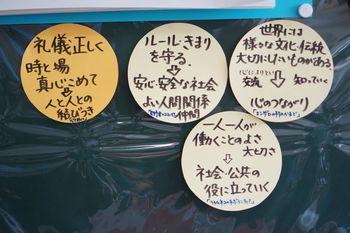 礼儀正しく
時と場
真心こめて
⇩
人と人との
結びつき
ルール・きまり
を守る
⇩
安心・安全な社会
よい人間関係
仲間
世界には
様々な文化・伝統
大切にしたいものがある
交流
⇩
知っていく
心のつながり
一人一人が
働くことのよさ
大切さ
⇩
社会・公共の
役に立っていく